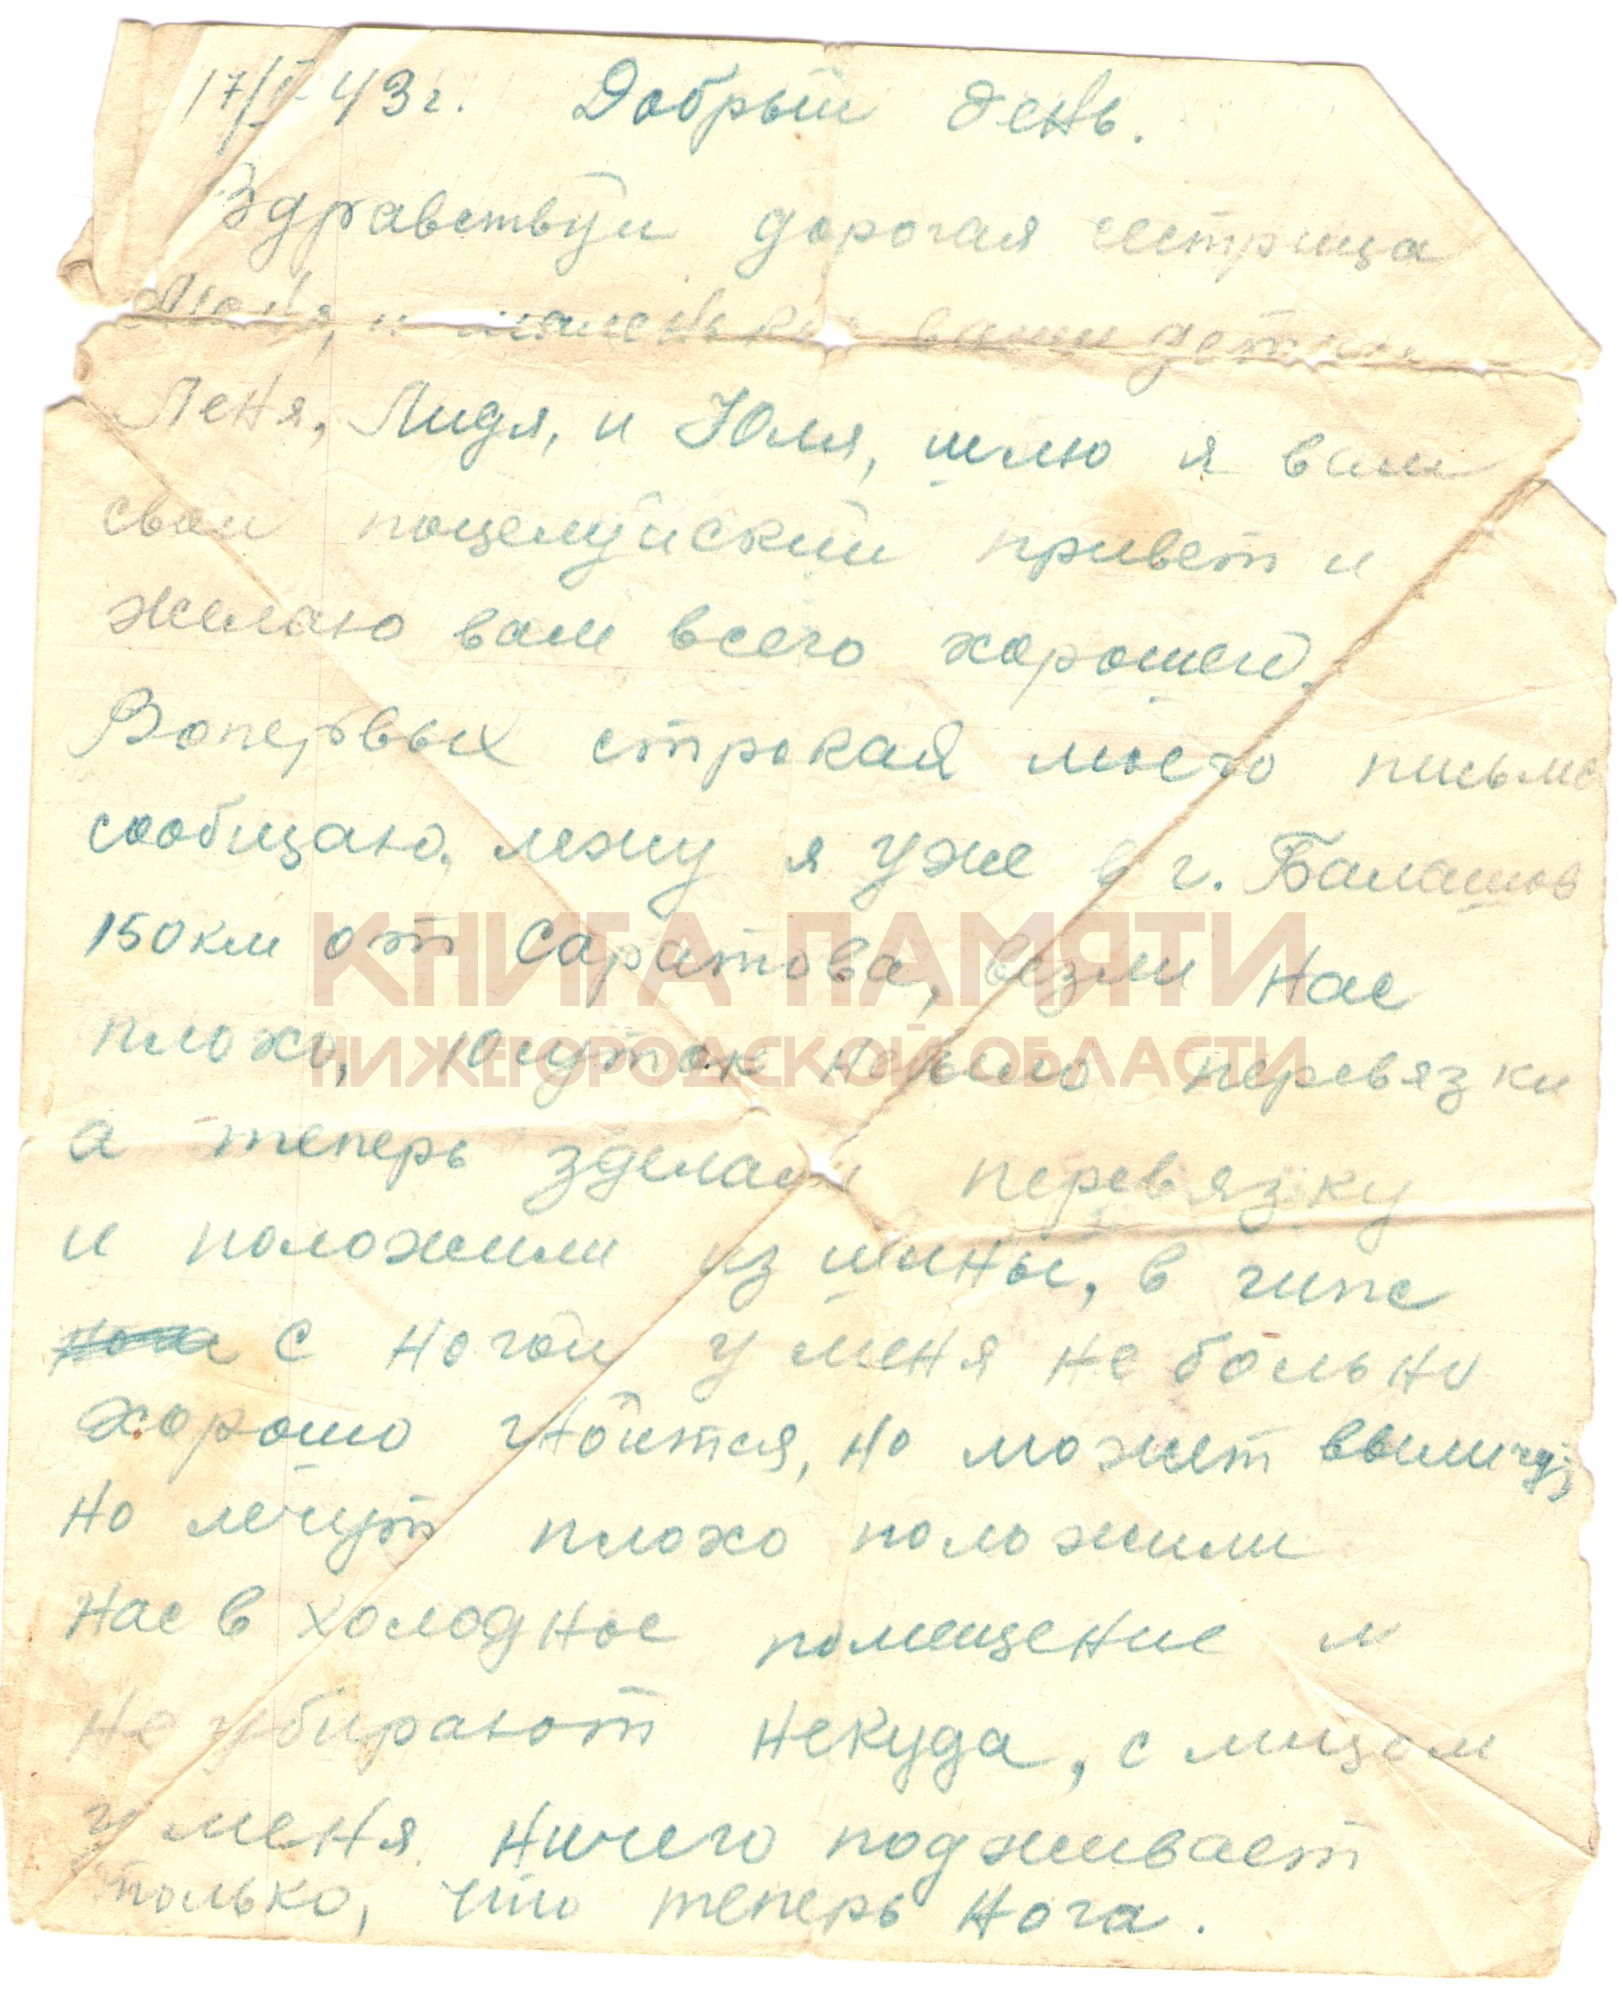 17/II 43 г. Добрый день.
Здравствуй дорогая сестрица
и маленькие ваши детки
Леня, Лидя, и Юля, шлю я вам
свой поцелуйский привет и
желаю вам всего хорошего.
Вопервых строкая моего письма
сообщаю, лежу я уже в г. Балашов
150 км от Саратова, везли нас
КНИГА ПАМЯТИ
плохо, 10 суток небыло перевязки
НИЖЕГОРОДСКОЙ ОБЛАСТИ
а теперь зделали перевязку
и положили из шины, в гипс
с ногой у меня не больно
хорошо гноится, но может вылечу,
но лечут плохо положили
нас в холодное помещение и
не убирают некуда, с лицом
у меня ничего подживает
только, что теперь нога.